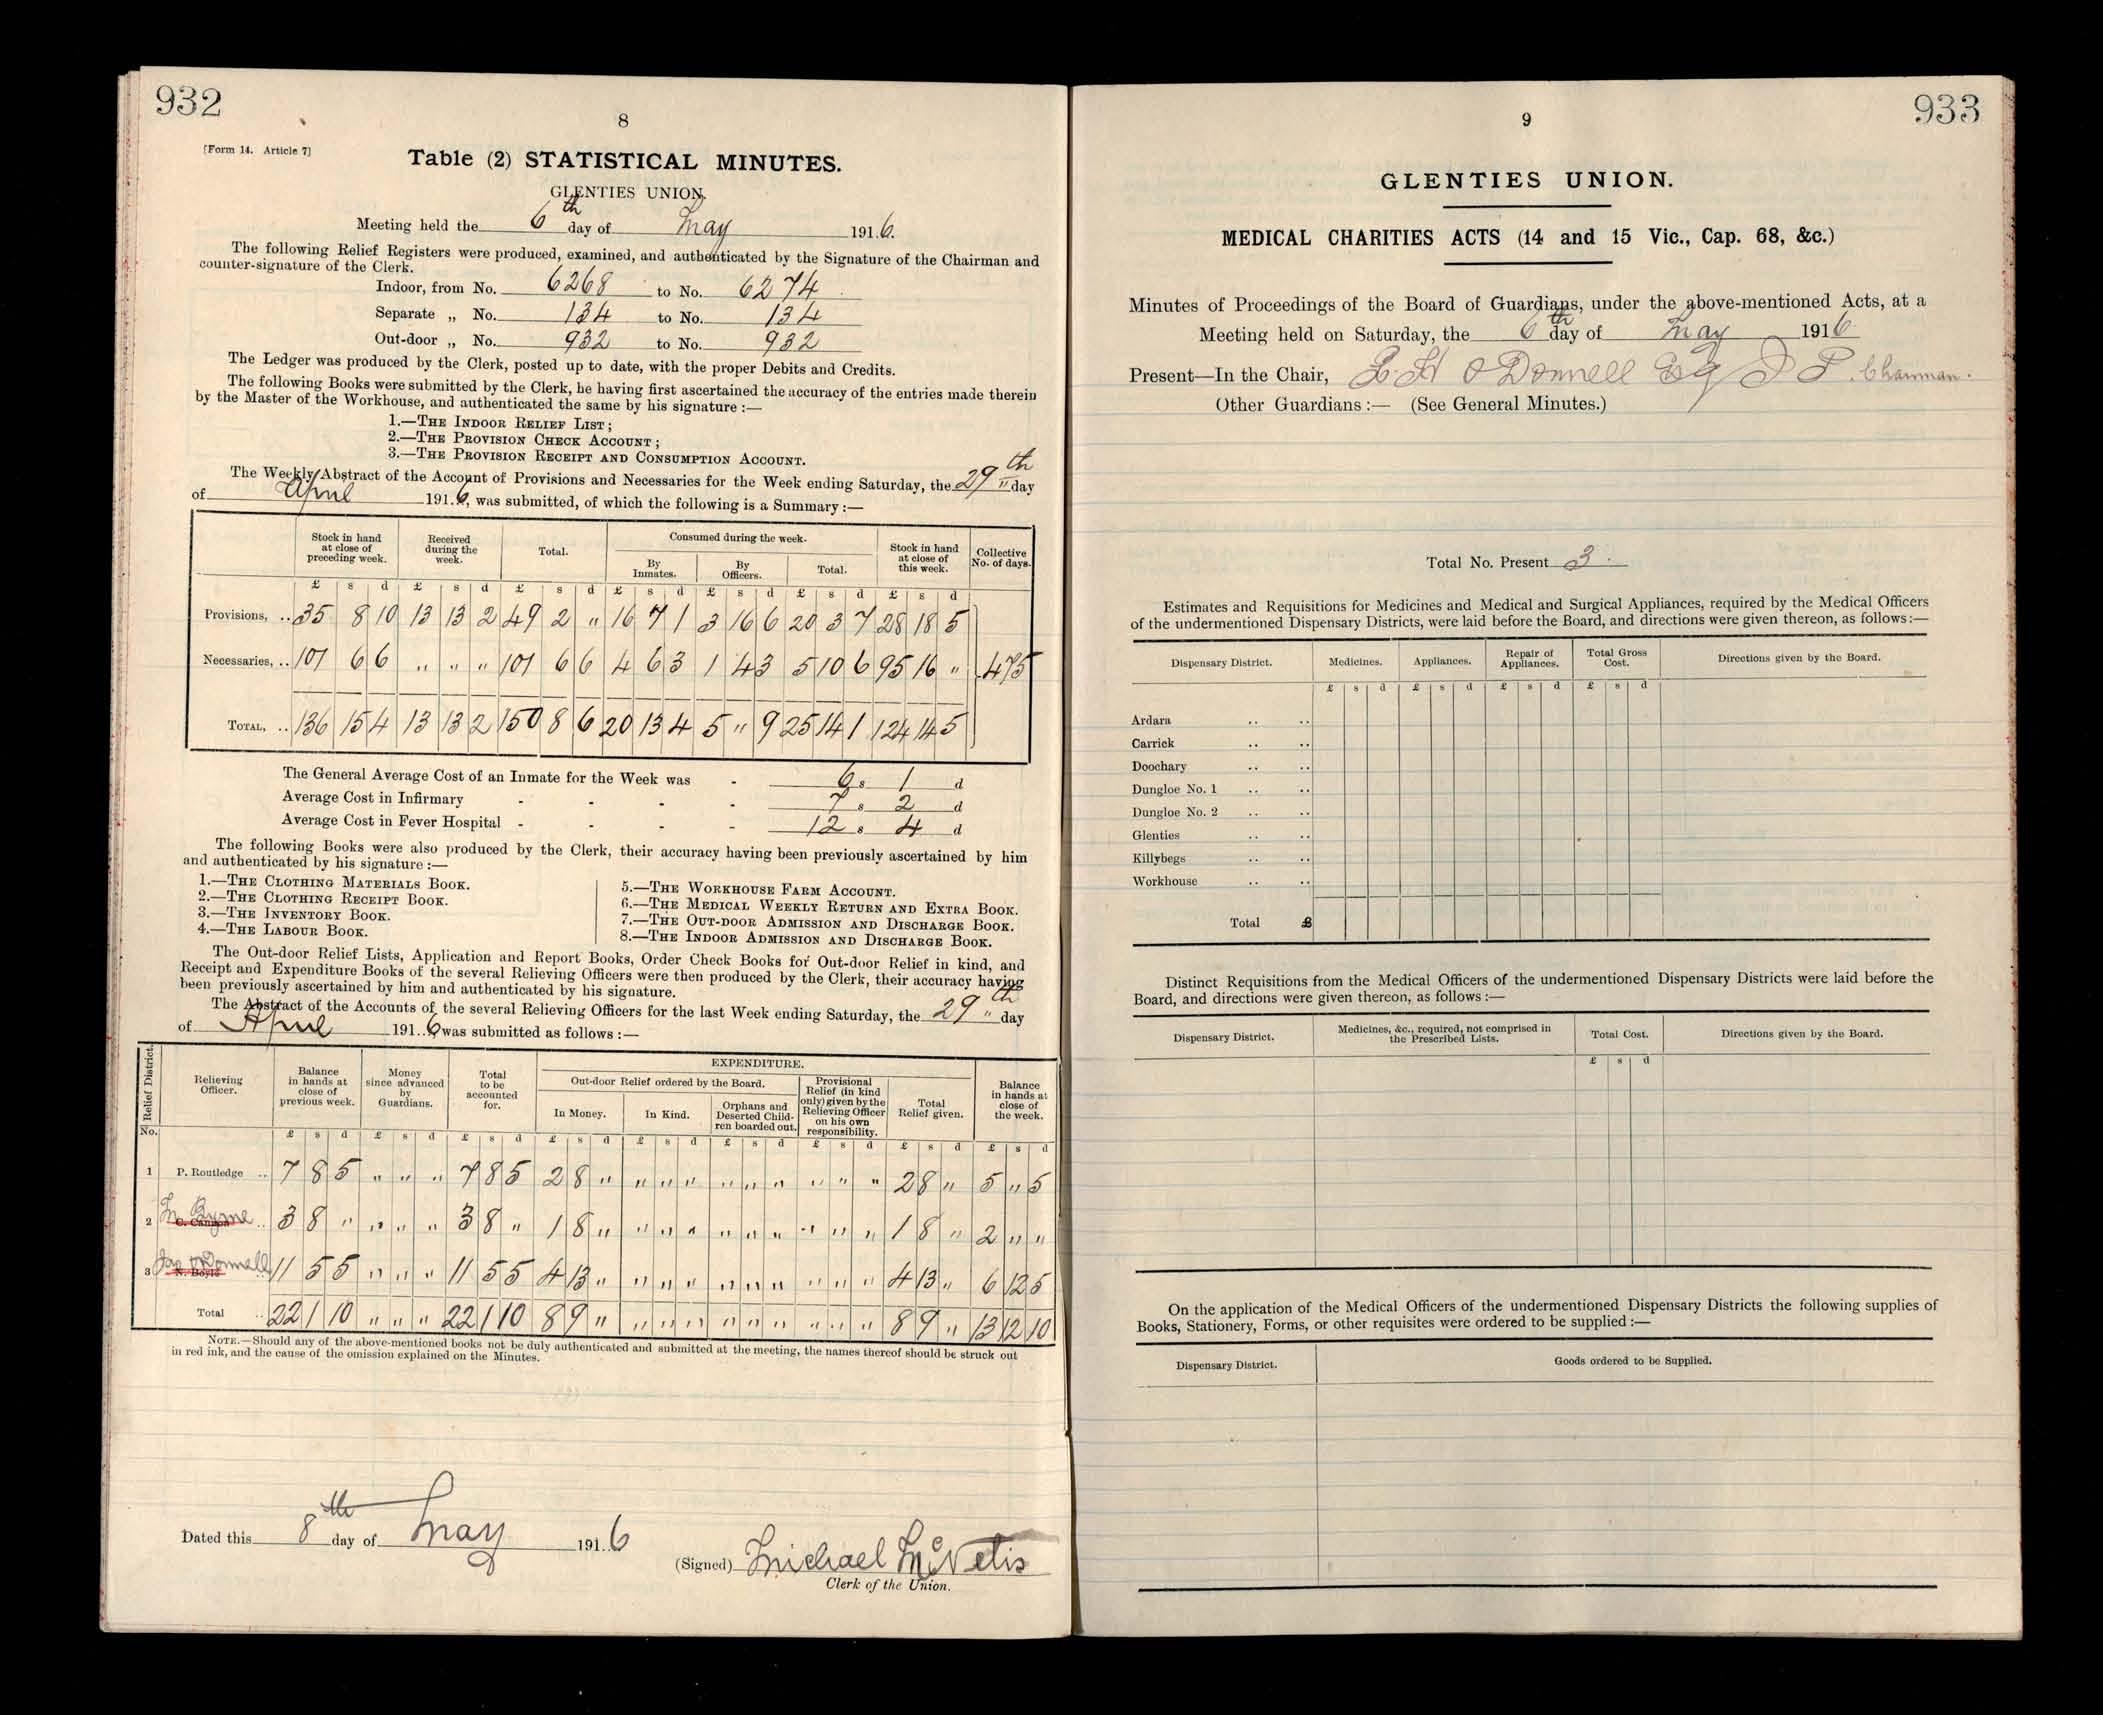 932
8
[Form 14. Article 7]
Table (2) STATISTICAL MINUTES.
GLENTIES UNION.
Meeting held the 6th day of May 1916.
The following Relief Registers were produced, examined, and authenticated by the Signature of the Chairman and
counter-signature of the Clerk.
Indoor, from No. 6268 to No. 6274
Separate „ No. 134 to No. 134
Out-door „ No. 932 to No. 932
The Ledger was produced by the Clerk, posted up to date, with the proper Debits and Credits.
The following Books were submitted by the Clerk, he having first ascertained the accuracy of the entries made therein
by the Master of the Workhouse, and authenticated the same by his signature :—
1.—THE INDOOR RELIEF LIST ;
2.—THE PROVISION CHECK ACCOUNT ;
3.—THE PROVISION RECEIPT AND CONSUMPTION ACCOUNT.
The Weekly Abstract of the Account of Provisions and Necessaries for the Week ending Saturday, the 29th day
of April 1916, was submitted, of which the following is a Summary :—
Stock in hand at close of preceding week. Received during the week. Total. Consumed during the week. By Inmates. By Officers. Total. Stock in hand at close of this week. Collective No. of days.
£ s d £ s d £ s d £ s d £ s d £ s d £ s d
Provisions, .. 35 8 10 13 13 2 49 2 " 16 7 1 3 16 6 20 3 7 28 18 5
Necessaries, .. 101 6 6 " " " 101 6 6 4 6 3 1 4 3 5 10 6 95 16 " 475
TOTAL, .. 136 15 4 13 13 2 150 8 6 20 13 4 5 " 9 25 14 1 124 14 5
The General Average Cost of an Inmate for the Week was - 6 s 1 d
Average Cost in Infirmary - - - - 7 s 2 d
Average Cost in Fever Hospital - - - - 12 s 4 d
The following Books were also produced by the Clerk, their accuracy having been previously ascertained by him
and authenticated by his signature :—
1.—THE CLOTHING MATERIALS BOOK.
2.—THE CLOTHING RECEIPT BOOK.
3.—THE INVENTORY BOOK.
4.—THE LABOUR BOOK.
5.—THE WORKHOUSE FARM ACCOUNT.
6.—THE MEDICAL WEEKLY RETURN AND EXTRA BOOK.
7.—THE OUT-DOOR ADMISSION AND DISCHARGE BOOK.
8.—THE INDOOR ADMISSION AND DISCHARGE BOOK.
The Out-door Relief Lists, Application and Report Books, Order Check Books for Out-door Relief in kind, and
Receipt and Expenditure Books of the several Relieving Officers were then produced by the Clerk, their accuracy having
been previously ascertained by him and authenticated by his signature.
The Abstract of the Accounts of the several Relieving Officers for the last Week ending Saturday, the 29th day
of April 1916 was submitted as follows :—
Relief District. No. Relieving Officer. Balance in hands at close of previous week. Money since advanced by Guardians. Total to be accounted for. EXPENDITURE. Out-door Relief ordered by the Board. In Money. In Kind. Orphans and Deserted Children boarded out. Provisional Relief (in kind only) given by the Relieving Officer on his own responsibility. Total Relief given. Balance in hands at close of the week.
£ s d £ s d £ s d £ s d £ s d £ s d £ s d £ s d £ s d
1 P. Routledge .. 7 8 5 " " " 7 8 5 2 8 " " " " " " " " " " 2 8 " 5 " 5
2 C. Cannon M Byrne .. 3 8 " " " " 3 8 " 1 8 " " " " " " " " " " 1 8 " 2 " "
3 N. Boyle Jas O'Donnell 11 5 5 " " " 11 5 5 4 13 " " " " " " " " " " 4 13 " 6 12 5
Total .. 22 1 10 " " " 22 1 10 8 9 " " " " " " " " " " 8 9 " 13 12 10
NOTE.—Should any of the above-mentioned books not be duly authenticated and submitted at the meeting, the names thereof should be struck out
in red ink, and the cause of the omission explained on the Minutes.
Dated this 8th day of May 1916
(Signed) Michael McNelis
Clerk of the Union.
933
9
GLENTIES UNION.
MEDICAL CHARITIES ACTS (14 and 15 Vic., Cap. 68, &c.)
Minutes of Proceedings of the Board of Guardians, under the above-mentioned Acts, at a
Meeting held on Saturday, the 6th day of May 1916
Present—In the Chair, O'Donnell Esq J P. Chairman.
Other Guardians :— (See General Minutes.)
Total No. Present 3
Estimates and Requisitions for Medicines and Medical and Surgical Appliances, required by the Medical Officers
of the undermentioned Dispensary Districts, were laid before the Board, and directions were given thereon, as follows :—
Dispensary District. Medicines. Appliances. Repair of Appliances. Total Gross Cost. Directions given by the Board.
£ s d £ s d £ s d £ s d
Ardara .. ..
Carrick .. ..
Doochary .. ..
Dungloe No. 1 .. ..
Dungloe No. 2 .. ..
Glenties .. ..
Killybegs .. ..
Workhouse .. ..
Total £
Distinct Requisitions from the Medical Officers of the undermentioned Dispensary Districts were laid before the
Board, and directions were given thereon, as follows :—
Dispensary District. Medicines, &c., required, not comprised in the Prescribed Lists. Total Cost. Directions given by the Board.
£ s d
On the application of the Medical Officers of the undermentioned Dispensary Districts the following supplies of
Books, Stationery, Forms, or other requisites were ordered to be supplied :—
Dispensary District. Goods ordered to be Supplied.